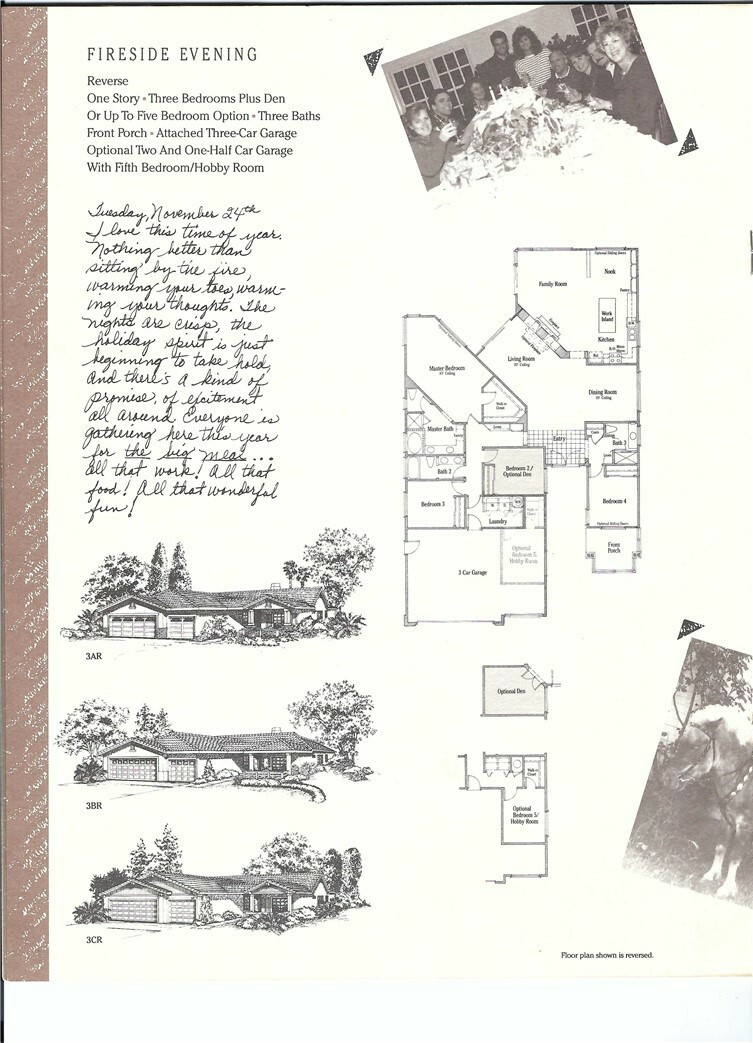 FIRESIDE EVENING
Reverse
One Story ▪ Three Bedrooms Plus Den
Or Up To Five Bedroom Option ▪ Three Baths
Front Porch ▪ Attached Three-Car Garage
Optional Two And One-Half Car Garage
With Fifth Bedroom/Hobby Room
Tuesday, November 24th
I love this time of year.
Nothing better than
sitting by the fire,
warming your toes, warm-
ing your thoughts. The
nights are crisp, the
holiday spirit is just
beginning to take hold,
And there's a kind of
promise, of excitement
all around. Everyone is
gathering here this year
for the big meal...
all that work! All that
food! All that wonderful
fun!
Optional Sliding Doors
Nook
Family Room
Pantry
Work
Island
Kitchen
Living Room
10' Ceiling
Master Bedroom
10' Ceiling
Dining Room
10' Ceiling
Walk-in
Closet
Master Bath
Linen
Entry
Coats
Bath 3
Linen
Bath 2
Bedroom 2/
Optional Den
Bedroom 4
Bedroom 3
Laundry
Walk-in
Closet
Optional Sliding Doors
Optional
Bedroom 5/
Hobby Room
Front
Porch
3 Car Garage
3AR
Optional Den
3BR
Walk-in
Closet
Optional
Bedroom 5/
Hobby Room
3CR
Floor plan shown is reversed.